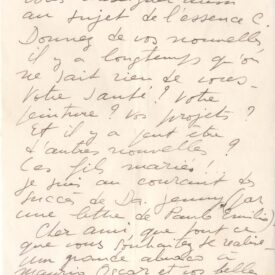 au sujet de l'essence C.
Donnez de vos nouvelles
il y a longtemps qu'on
ne sait rien de vous -
Votre santé? Votre
peinture? Vos projets?
Et il y a peut être
d'autres nouvelles?
Les fils mariés!
Je suis au courant des
succès de Da. Jenny (par
une lettre, de Paulo "Emilio")
Cher ami, que tout ce
que vous souhaitez se réalise -
une grande abrazo à
Oscar et vos belle